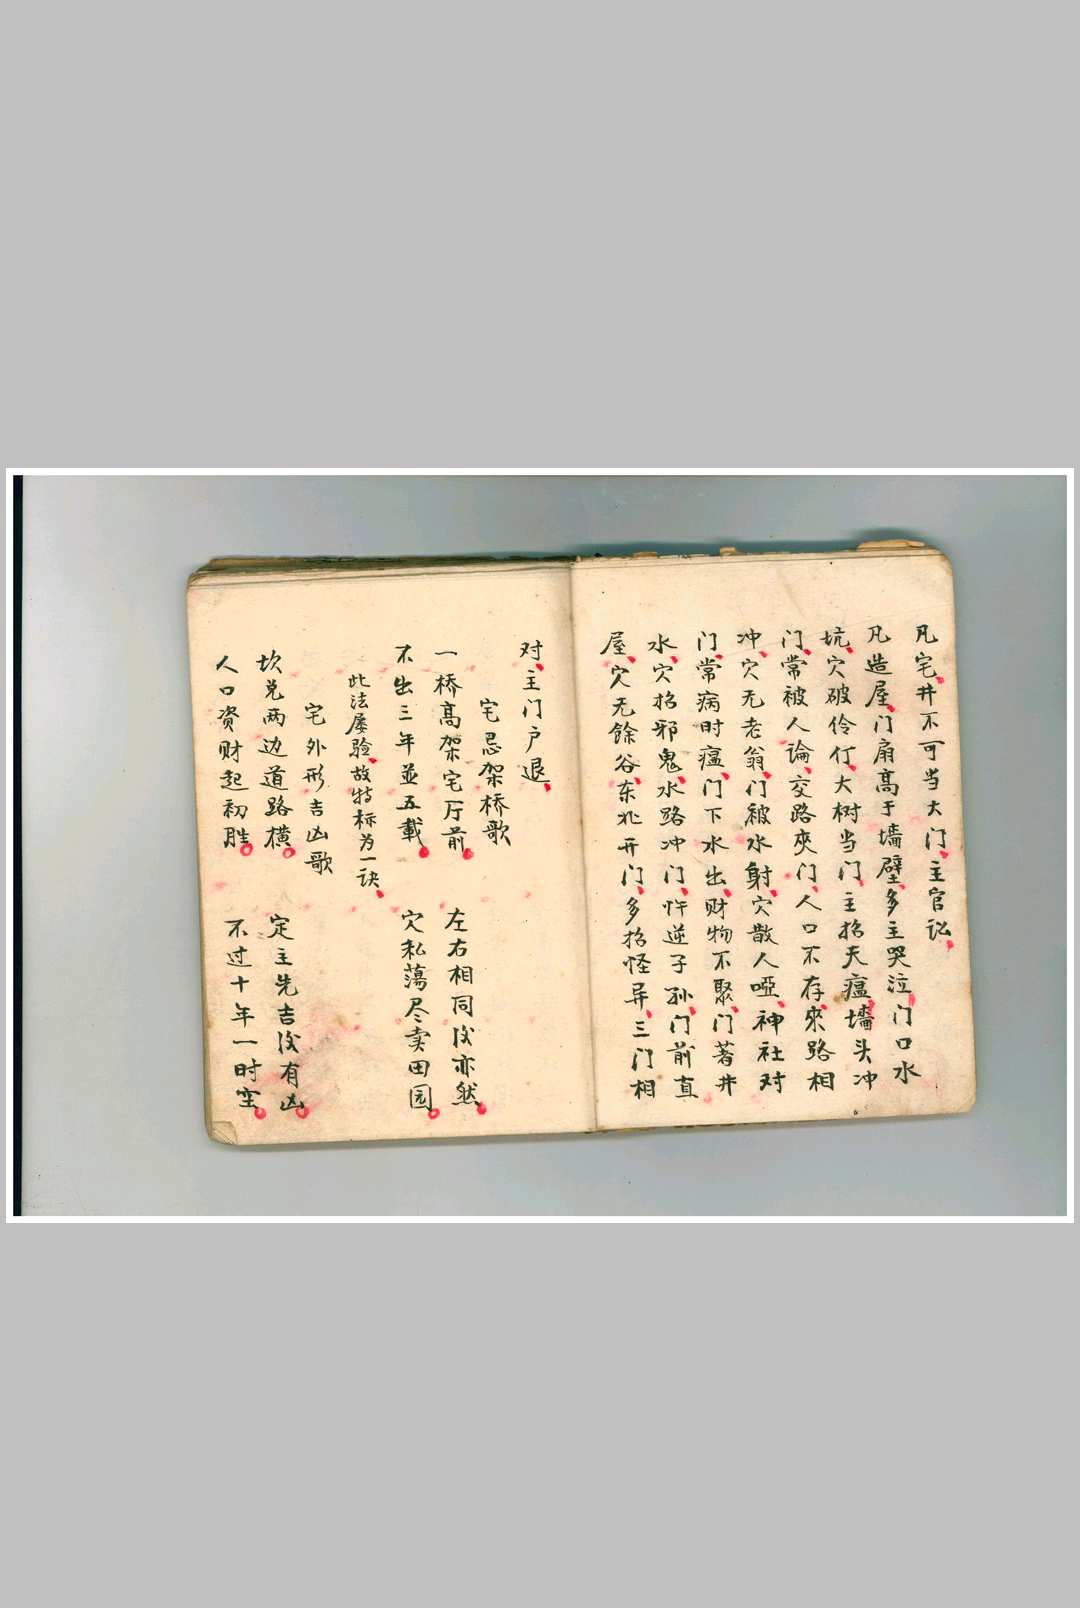 凡宅井不可当大门、主官讼、
凡造屋、门扇高于墙壁、多主哭泣、门口水
坑、穴破伶仃、大树当门、主招天瘟、墙头冲
门、常被人论、交路夾门、人口不存、來路相
冲、穴无老翁、门被水射、穴散人哑、神社对
门、常病时瘟、门下水出、财物不聚、门著井
水、穴招邪鬼、水路冲门、忤逆子孙、门前直
屋、穴无餘谷、东北开门、多招怪异、三门相
对、主门户退、
宅忌架桥歌
一桥高架宅厅前。左右相同没亦然。
不出三年並五載。穴私蕩尽卖田园。
此法屡验、故特标为一诀、
宅外形吉凶歌
坎兑两边道路横。定主先吉没有凶。
人口资财起初胜。不过十年一时空。